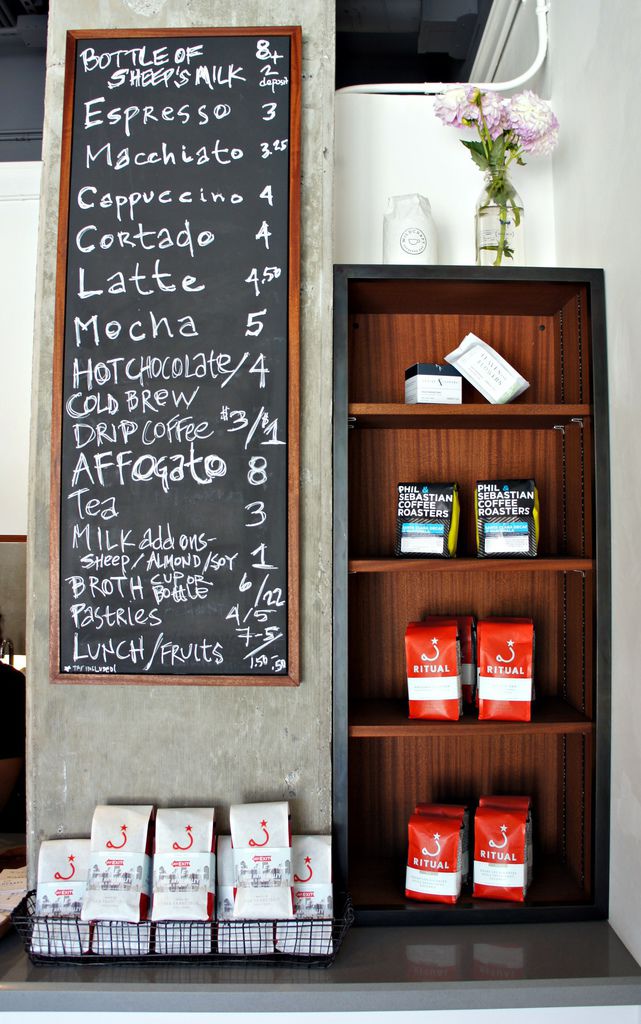 BOTTLE OF 8+
SHEEP'S MILK 2 deposit
Espresso 3
Macchiato 3.25
Cappuccino 4
Cortado 4
Latte 4.50
Mocha 5
HOT CHOCOLATE/ 4
COLD BREW
DRIP COFFEE $3/$1
AFFOGATO 8
Tea 3
MILK add ons-
SHEEP/ALMOND/SOY 1
BROTH CUP OR BOTTLE 6/22
PASTRIES 4/5
LUNCH/FRUITS 7-5/1.50-.50
* TAX INCLUDED!
PHIL &
SEBASTIAN
COFFEE
ROASTERS
PHIL &
SEBASTIAN
COFFEE
ROASTERS
RITUAL
RITUAL
RITUAL
RITUAL